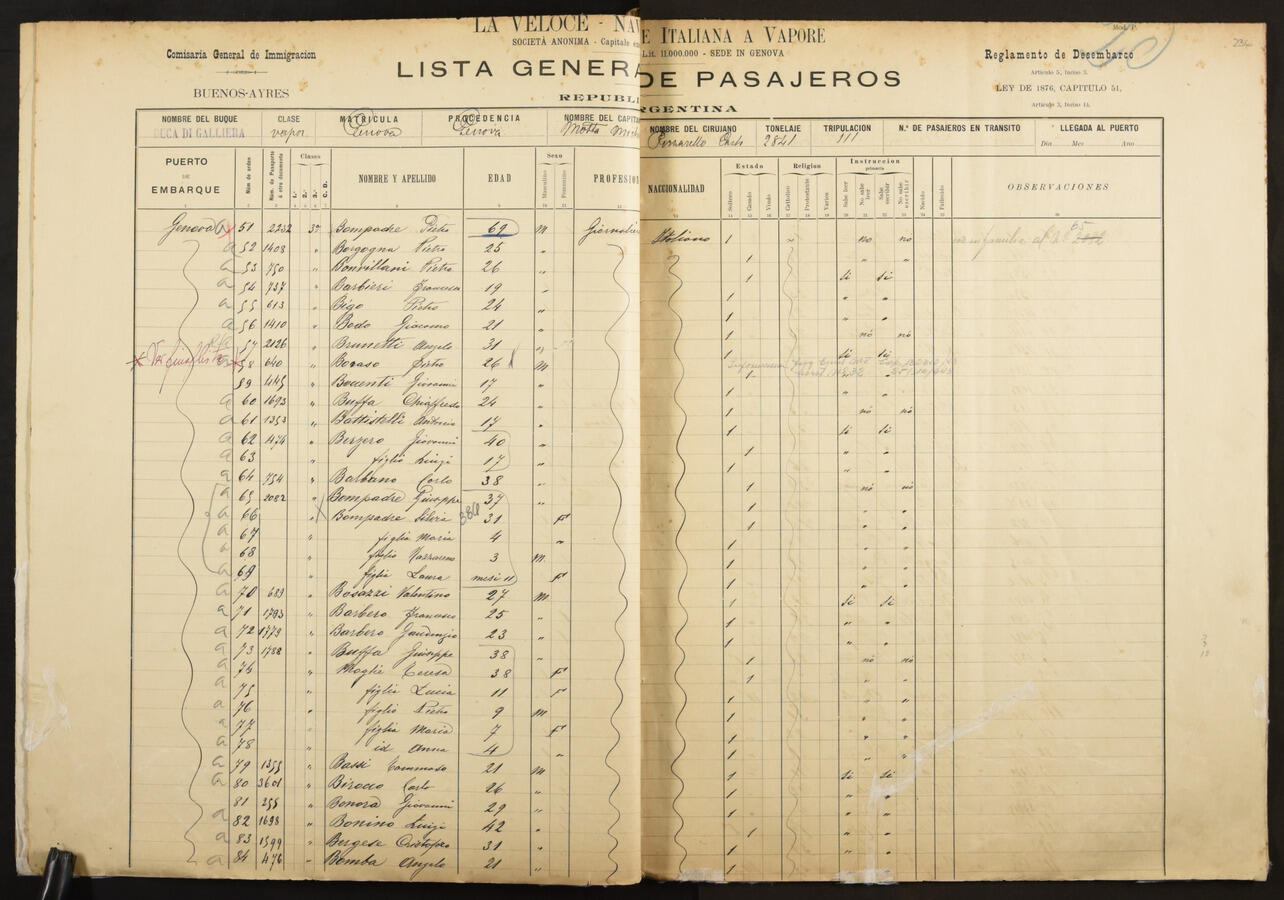 LA VELOCE - NA E ITALIANA A VAPORE
SOCIETÀ ANONIMA - Capitale Lit. 11.000.000 - SEDE IN GENOVA
Comisaria General de Immigracion
BUENOS-AYRES
LISTA GENERA DE PASAJEROS
REPUBLI RGENTINA
Reglamento de Desembarco
Articulo 5, Inciso 3.
LEY DE 1876, CAPITULO 51,
Articulo 3, Inciso 14.
234
NOMBRE DEL BUQUE CLASE MATRICULA PROCEDENCIA NOMBRE DEL CAPITA NOMBRE DEL CIRUJANO TONELAJE TRIPULACION N.º DE PASAJEROS EN TRANSITO LLEGADA AL PUERTO
DUCA DI GALLIERA vapor Genova Genova Motta Carlo 2841 111 Dia Mes Ano
PUERTO DE EMBARQUE Núm de orden Núm. de Pasaporte ú otro documento Clases 1.ª 2.ª 3.ª C. D. NOMBRE Y APELLIDO EDAD Sexo Masculino Femenino PROFESIO NACCIONALIDAD Estado Soltero Casado Viudo Religion Catolico Protestante Varios Instruccion primaria Sabe leer No sabe leer Sabe escribir No sabe escribir Nacido Fallecido OBSERVACIONES
Genova a 51 2232 3ª Bompadre Pietro 69 M Giornalier Italiano 1 no no
a 52 1408 " Borgogna Pietro 25 " 1 " "
a 53 750 " Bonvillani Pietro 26 " 1 si si
a 54 737 " Barbieri Francesco 19 " 1 " "
a 55 613 " Bigo Pietro 24 " 1 " "
a 56 1410 " Bodo Giacomo 21 " 1 no no
a 57 2126 " Brunetti Angelo 31 " 1 si si
58 640 " Boraso Pietro 26 M 1 " "
59 445 " Giovanni 17 " 1 " "
a 60 1693 " Buffa Chiaffredo 24 " 1 no no
a 61 1353 " Battistelli Antonio 17 " 1 si si
a 62 474 " Berzero Giovanni 40 " 1 " "
a 63 " figlio Luigi 17 " 1 " "
a 64 754 " Barbano Carlo 38 " 1 no no
a 65 2082 " Bompadre Giuseppe 37 " 1 " "
a 66 " Bompadre Silvia 31 F 1 " "
a 67 " figlia Maria 4 " 1 " "
a 68 " figlio Nazzareno 3 M 1 " "
a 69 " figlia Laura mesi 11 F 1 " "
a 70 689 " Bosazzi Valentino 27 M 1 si si
a 71 1793 " Barbero Francesco 25 " 1 " "
a 72 1779 " Barbero Gaudenzio 23 " 1 " "
a 73 1782 " Buffa Giuseppe 38 " 1 no no
a 74 " Moglie Teresa 38 F 1 " "
a 75 " figlia Lucia 11 F 1 " "
a 76 " figlio Pietro 9 M 1 " "
a 77 " figlia Maria 7 F 1 " "
a 78 " id Anna 4 " 1 " "
a 79 1355 " Bassi Tommaso 21 M 1 si si
a 80 3601 " Birocco Carlo 26 " 1 " "
81 255 " Bonora Giovanni 29 " 1 " "
a 82 1698 " Bonino Luigi 42 " 1 " "
a 83 1599 " Bergese Cristoforo 31 " 1 " "
a 84 476 " Bomba Angelo 21 " 1 " "